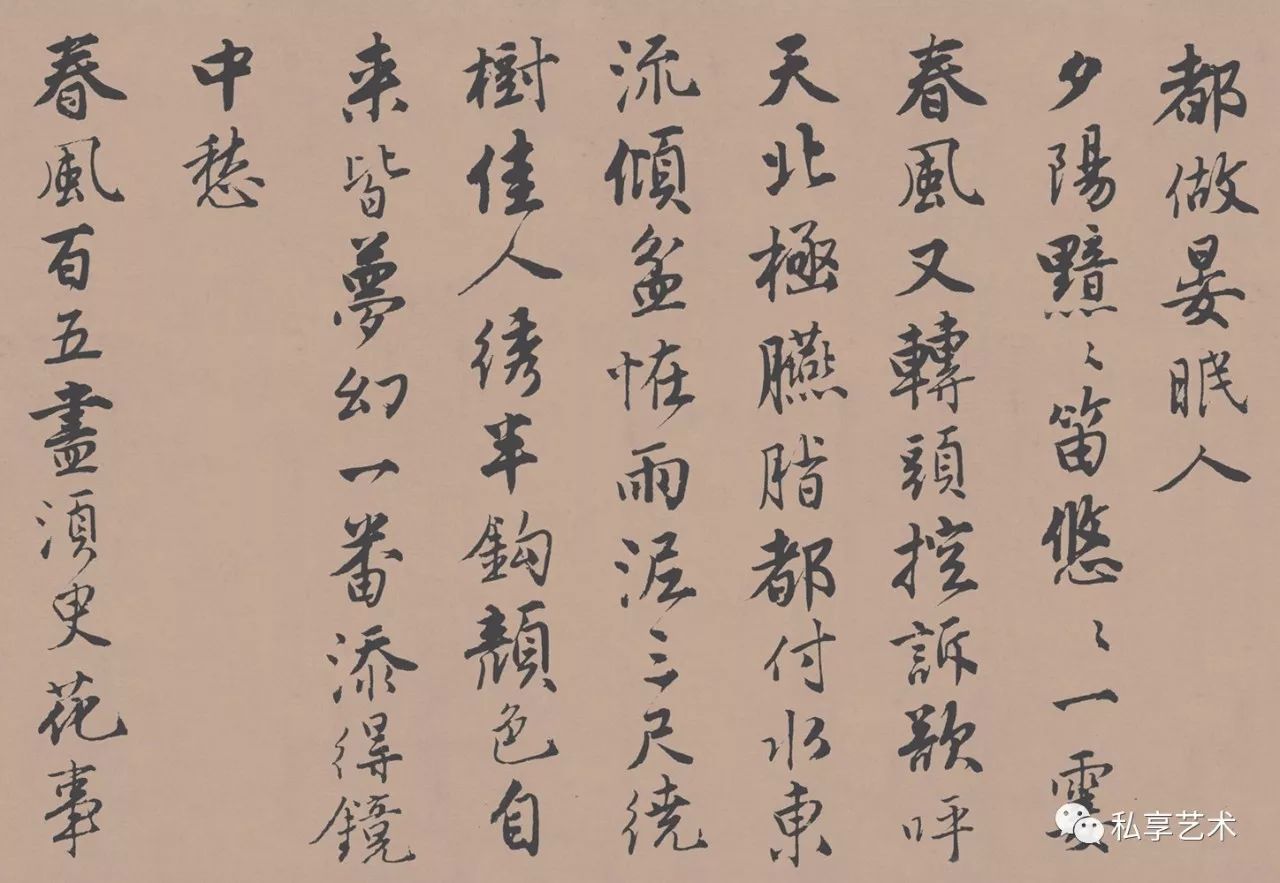 都做晏眠人
夕陽黯〻笛悠〻一霎
春風又轉頭控訴欲呼
天北極臙脂都付水東
流傾盆恠雨泥三尺繞
樹佳人綉半鈎顔色自
来皆夢幻一番添得鏡
中愁
春風百五盡須臾花事
私享艺术